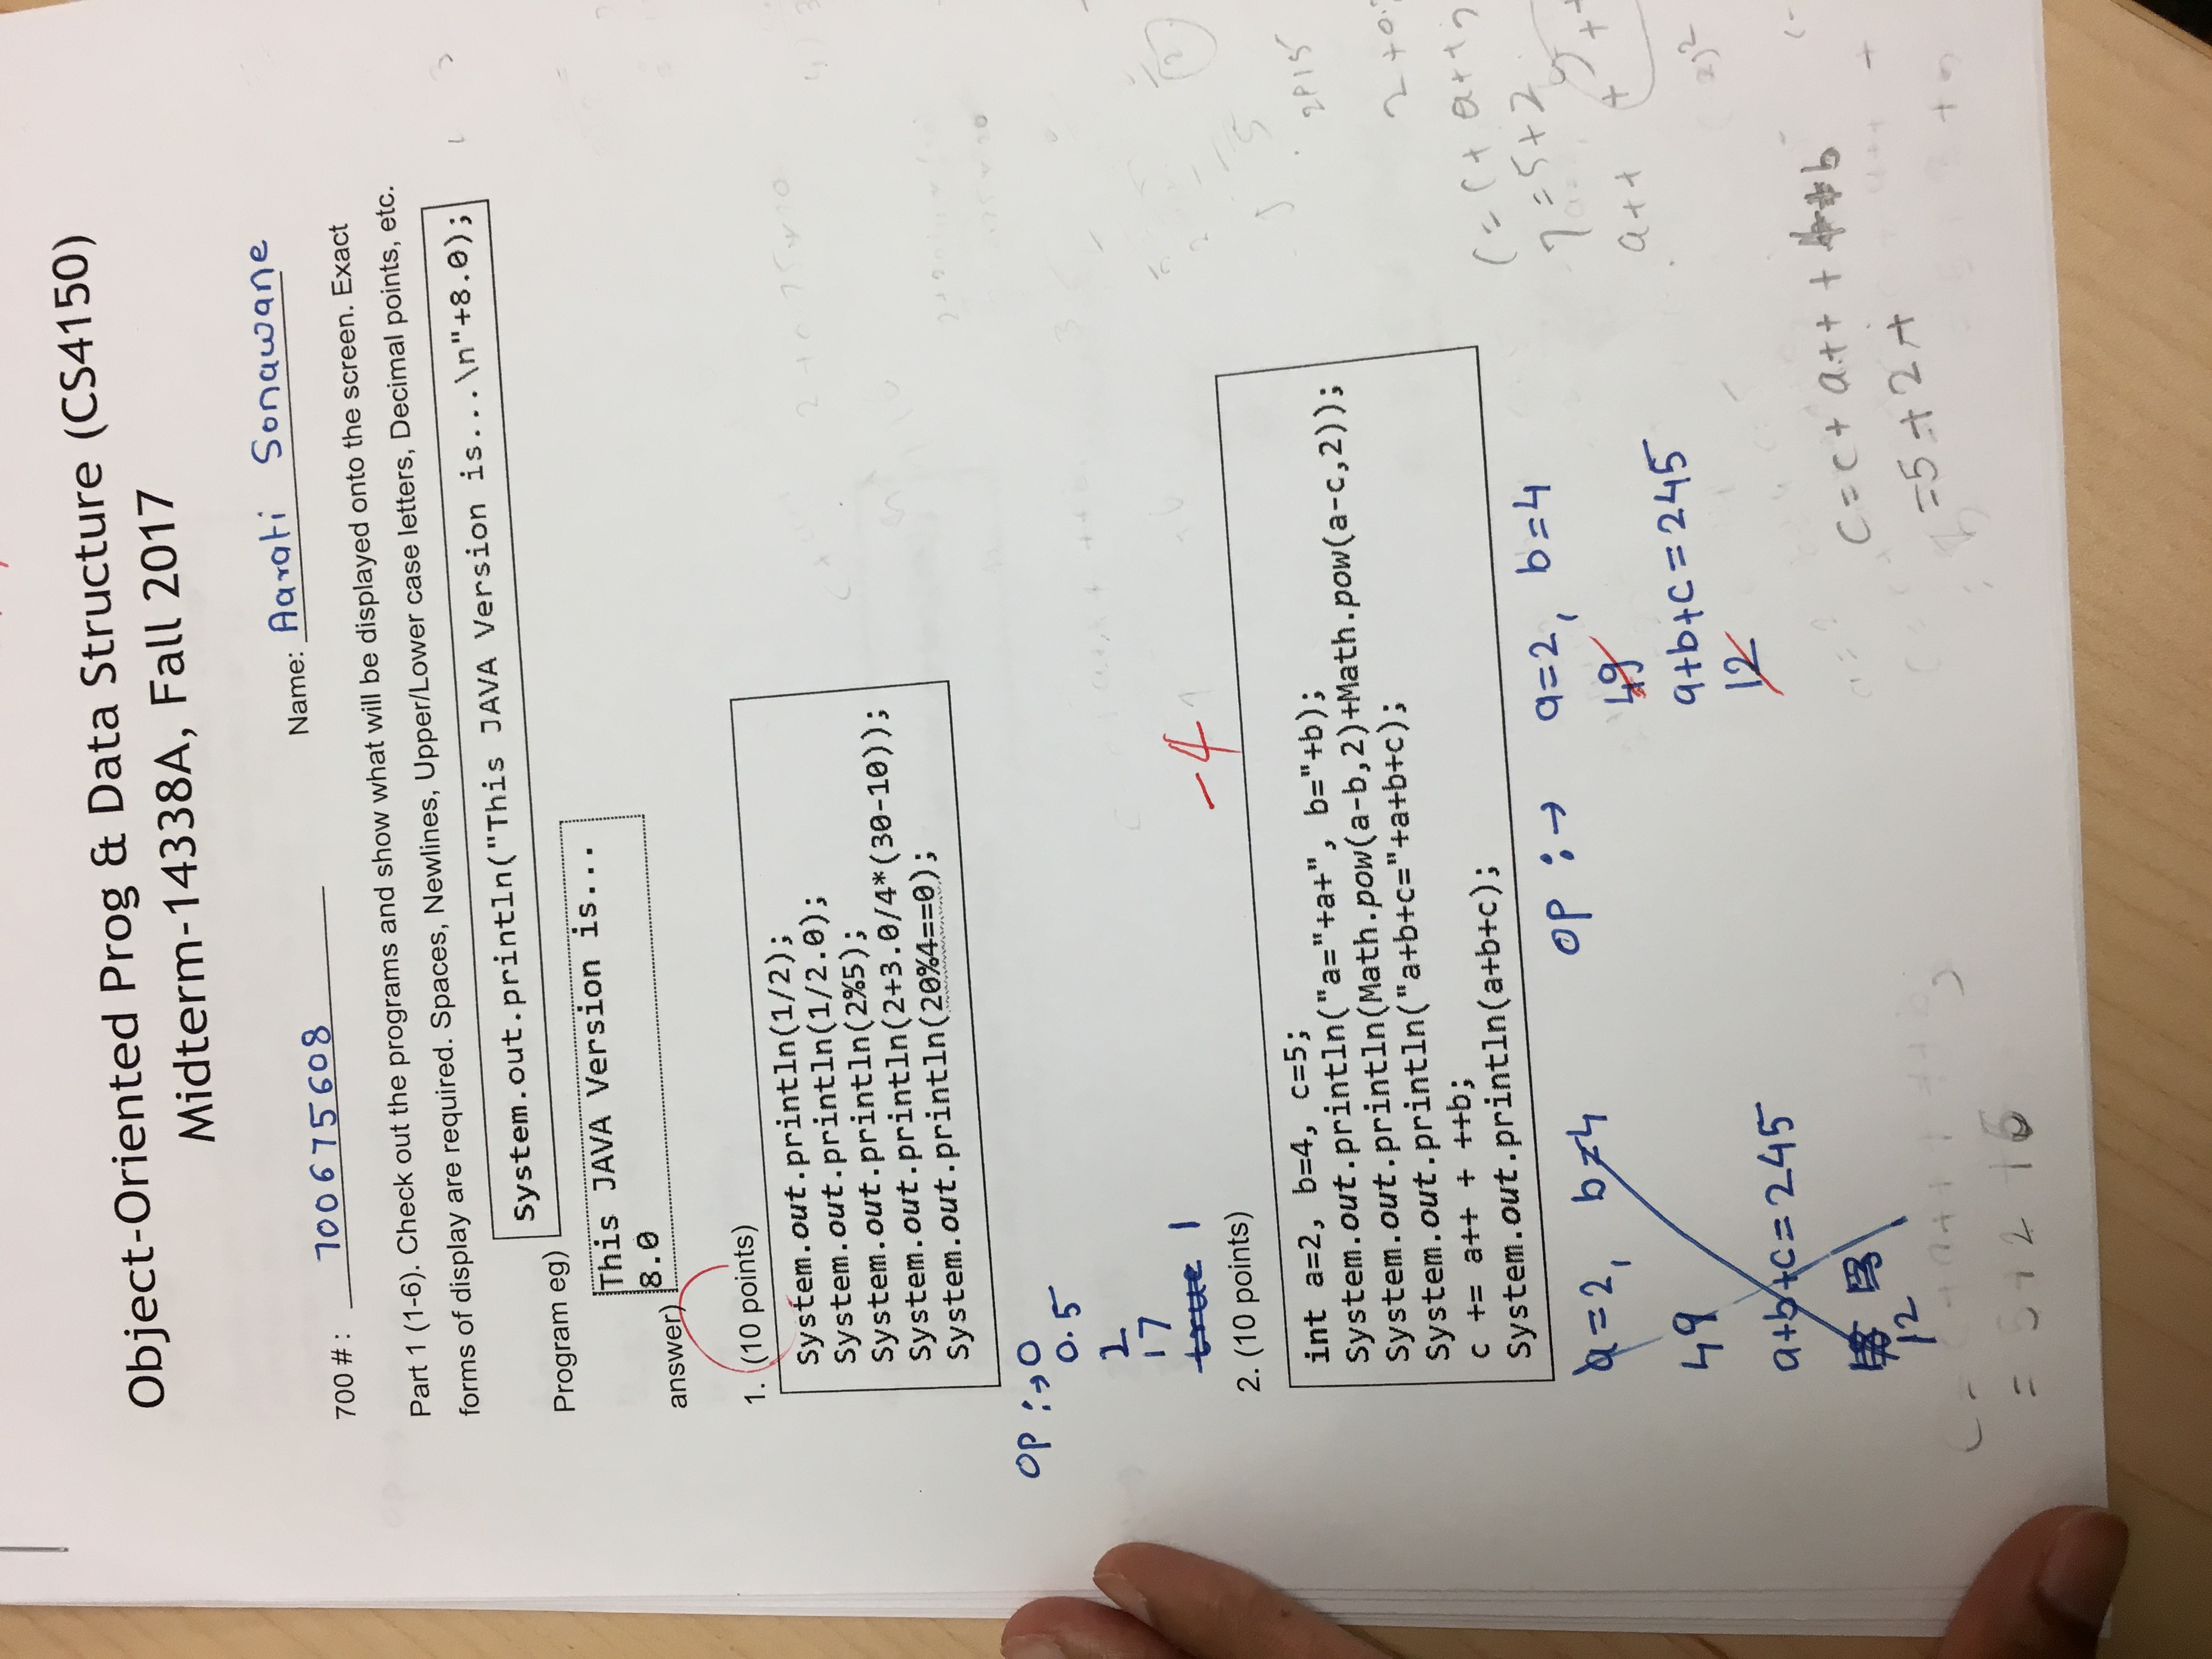 Object-Oriented Prog & Data Structure (CS4150)
Midterm-14338A, Fall 2017
700 # : 700675608 Name: Aarati Sonawane
Part 1 (1-6). Check out the programs and show what will be displayed onto the screen. Exact
forms of display are required. Spaces, Newlines, Upper/Lower case letters, Decimal points, etc.
Program eg) System.out.println("This JAVA Version is...\n"+8.0);
This JAVA Version is...
answer) 8.0
1. (10 points)
System.out.println(1/2);
System.out.println(1/2.0);
System.out.println(2%5);
System.out.println(2+3.0/4*(30-10));
System.out.println(20%4==0);
OP :→ 0
0.5
2
17
true 1
-4
2. (10 points)
int a=2, b=4, c=5;
System.out.println("a="+a+", b="+b);
System.out.println(Math.pow(a-b,2)+Math.pow(a-c,2));
System.out.println("a+b+c="+a+b+c);
c += a++ + ++b;
System.out.println(a+b+c);
a=2, b=4
49
a+b+c=245
12
OP :→ a=2, b=4
49
a+b+c=245
12
2P15
2+0.
C=C+a++
7=5+2
a++
C=C+a++ + b
=5+2+
= 5+2+